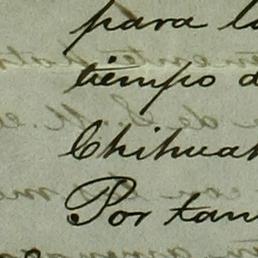 para l
tiempo d
Chihuah
Por tan